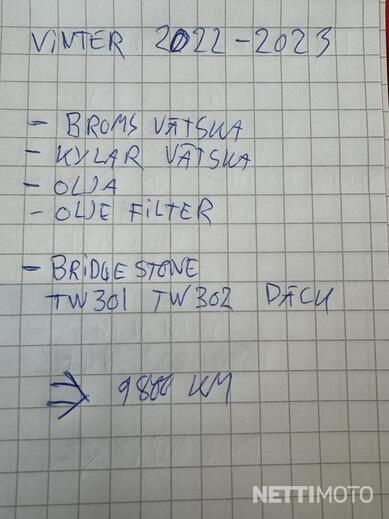 VINTER 2022-2023
- BROMS VÄTSKA
- KYLAR VÄTSKA
- OLJA
- OLJE FILTER
- BRIDGESTONE
TW301 TW302 DÄCK
⇒ 9800 KM
NETTIMOTO